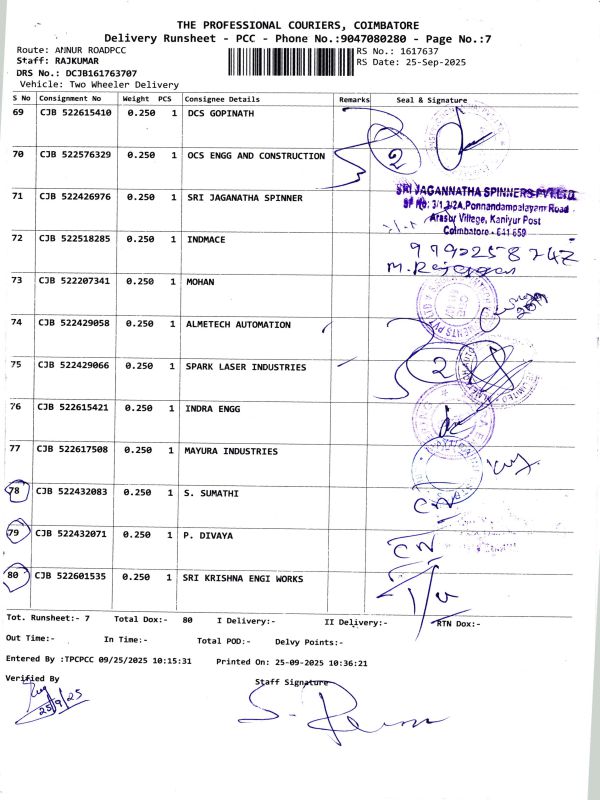 THE PROFESSIONAL COURIERS, COIMBATORE
Delivery Runsheet - PCC - Phone No.:9047080280 - Page No.:7
Route: ANNUR ROADPCC
RS No.: 1617637
Staff: RAJKUMAR
RS Date: 25-Sep-2025
DRS No.: DCJB161763707
Vehicle: Two Wheeler Delivery
S No Consignment No Weight PCS Consignee Details Remarks Seal & Signature
69 CJB 522615410 0.250 1 DCS GOPINATH
70 CJB 522576329 0.250 1 OCS ENGG AND CONSTRUCTION 2
71 CJB 522426976 0.250 1 SRI JAGANATHA SPINNER
SRI JAGANNATHA SPINNERS PVT LTD
SF No: 3/1,3/2A,Ponnandampalayam Road
Arasur Village, Kaniyur Post
Coimbatore - 641 659
72 CJB 522518285 0.250 1 INDMACE
73 CJB 522207341 0.250 1 MOHAN
74 CJB 522429058 0.250 1 ALMETECH AUTOMATION
75 CJB 522429066 0.250 1 SPARK LASER INDUSTRIES 2
76 CJB 522615421 0.250 1 INDRA ENGG
77 CJB 522617508 0.250 1 MAYURA INDUSTRIES
78 CJB 522432083 0.250 1 S. SUMATHI
79 CJB 522432071 0.250 1 P. DIVAYA
80 CJB 522601535 0.250 1 SRI KRISHNA ENGI WORKS
Tot. Runsheet:- 7 Total Dox:- 80 I Delivery:- II Delivery:- RTN Dox:-
Out Time:- In Time:- Total POD:- Delvy Points:-
Entered By :TPCPCC 09/25/2025 10:15:31 Printed On: 25-09-2025 10:36:21
Verified By Staff Signature
25/9/25